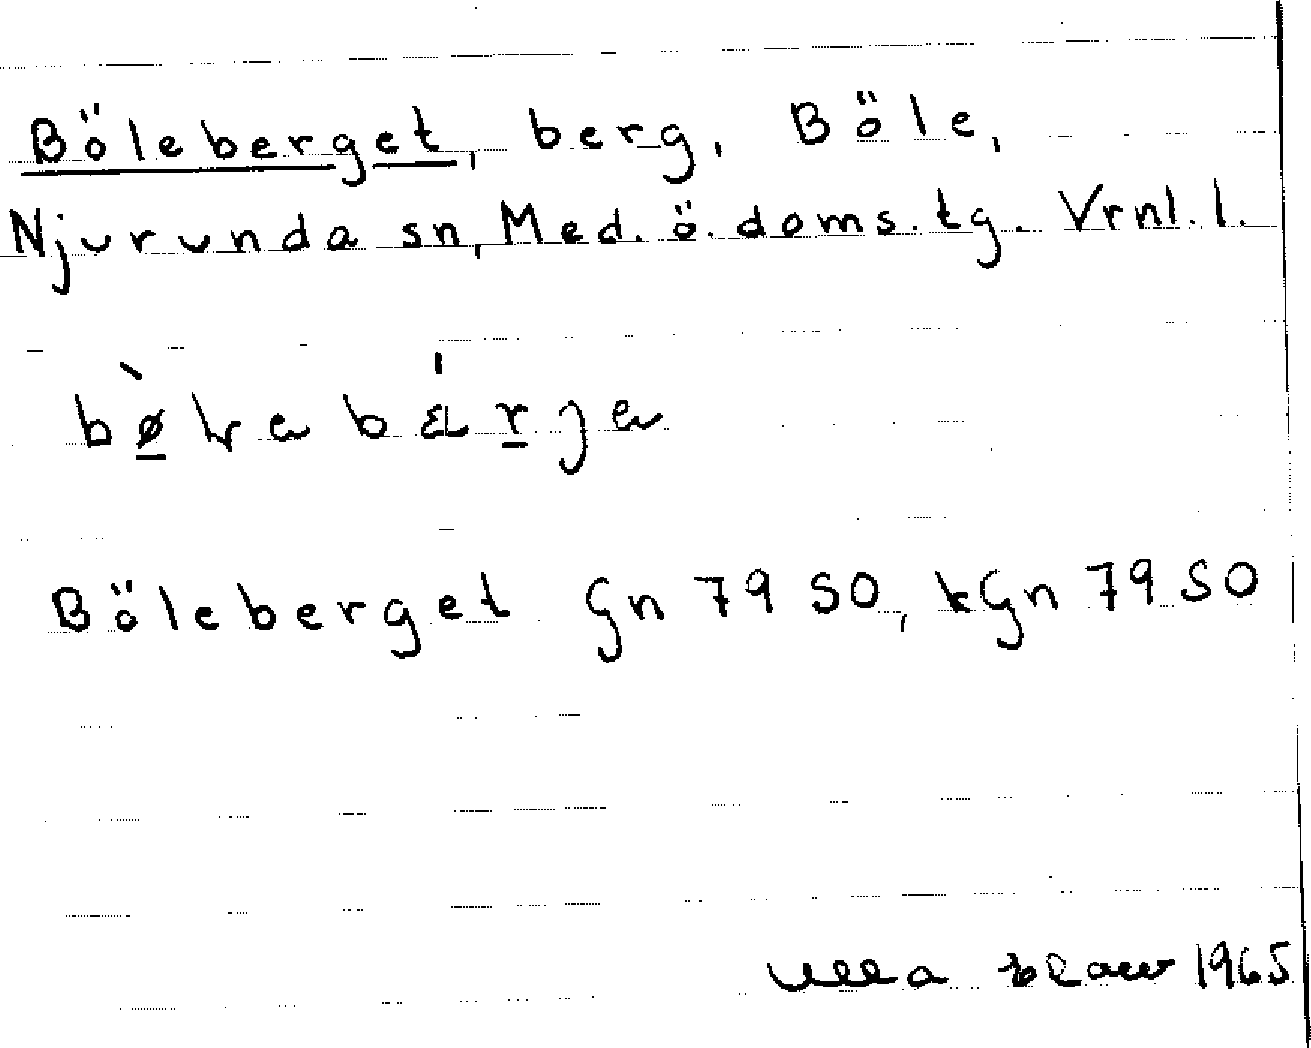 Böleberget, berg, Böle,
Njurunda sn, Med. ö. doms. tg. Vrnl. l.
Böleberget Gn 79 SO, kGn 79 SO
Ulla 1965